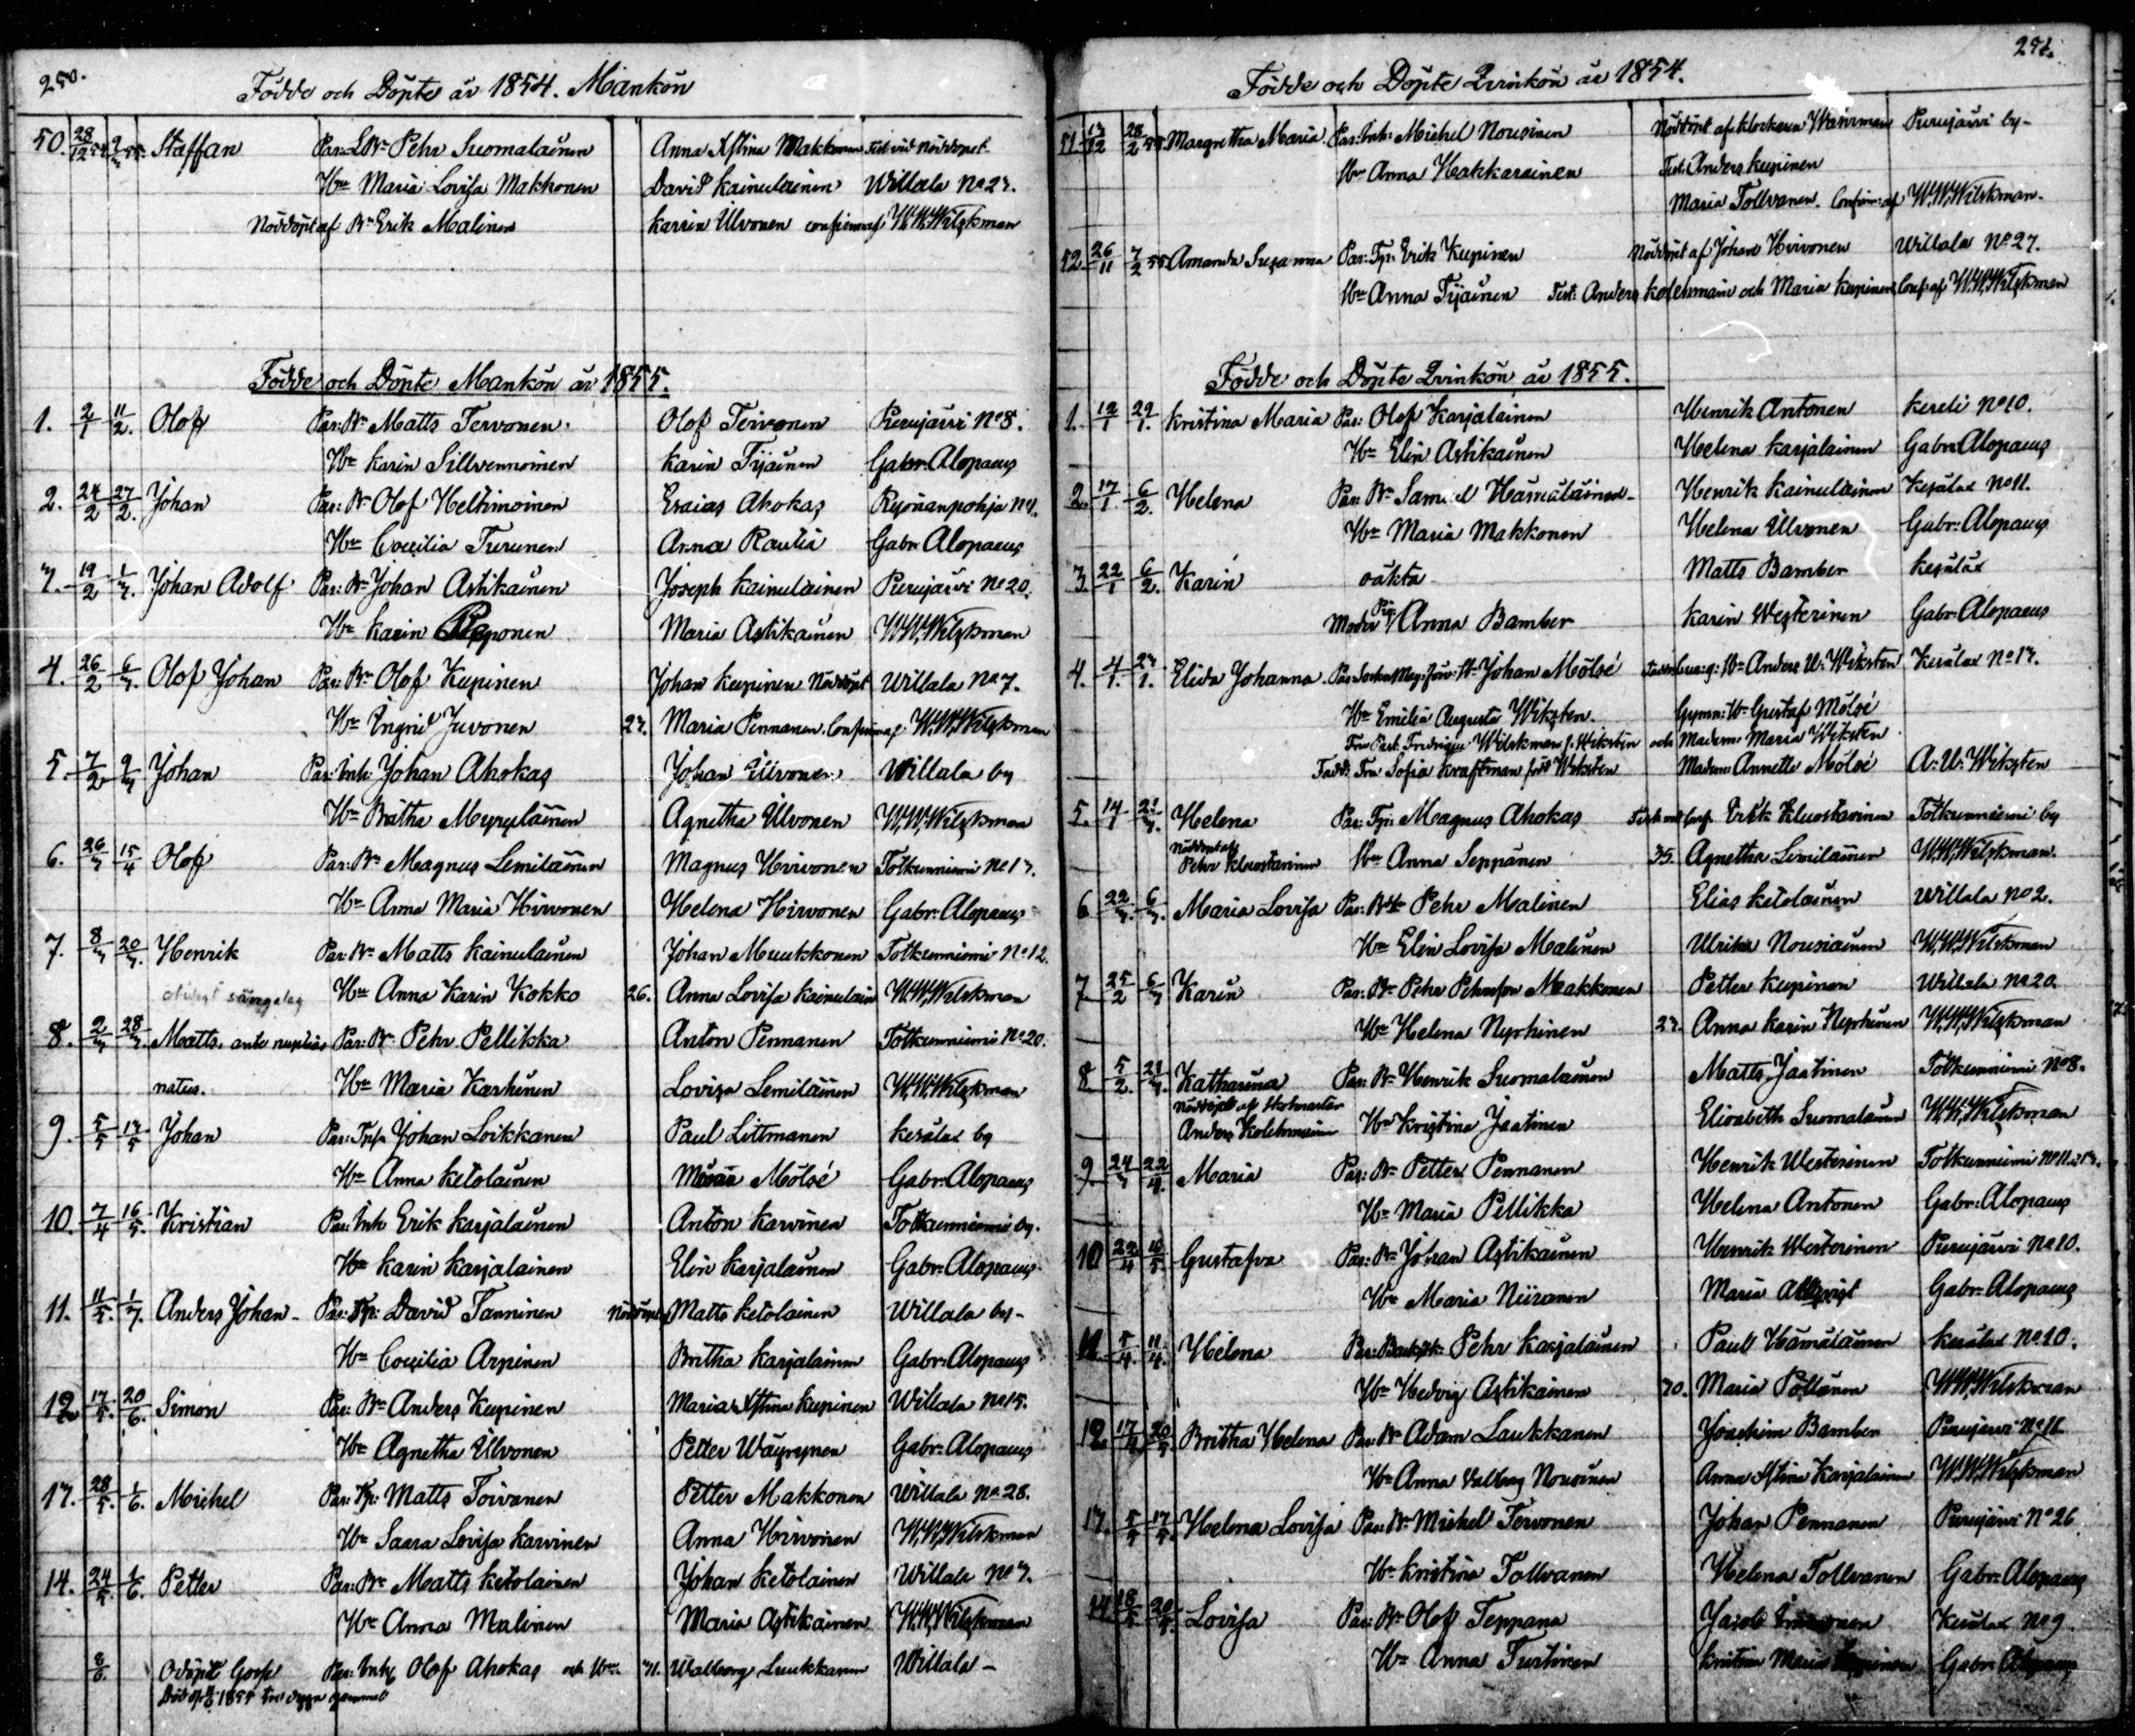 250.
Födde och Döpte år 1854. Mankön
50. 28/12 54 Staffan Par: Bn Pehr Suomalainen Anna Kstina Makkonen Test vid nöddopet
Hu Maria Lovisa Makkonen David Kainulainen Willala No 23.
Nöddöpt af Bn Erik Malinen Karin Ulvonen confirm af W.W. Wilskman
Födde och Döpte Mankön år 1855.
1. 2/1 11/2. Olof Par: Bn Matts Tervonen. Olof Teivonen Purujärvi No 8.
Hu Karin Sillvennoinen Karin Tijainen Gabr. Alopaeus
2. 24/2 27/2. Johan Par: Bn Olof Heltimoinen Esaias Ahokas No 4.
Hu Coecilia Turunen Anna Rautia Gabr Alopaeus
3. 19/2 1/3. Johan Adolf Par: Bn Johan Astikainen Joseph Kainulainen Purujärvi No 20.
Hu Karin Maria Astikainen W.W. Wilskman
4. 26/2 6/3. Olof Johan Par: Bn Olof Kupinen Johan Kupinen Nöddöpt Willala No 7.
Hu Ingrid Juvonen 23. Maria Pennanen. Confirm af W.W. Wilskman
5. 7/2 9/3 Johan Par: Inh: Johan Ahokas Johan Ulvonen Willala by
Hu Britha Myryläinen Agnetha Ulvonen W.W. Wilskman
6. 26/3 15/4 Olof Par: Bn Magnus Lemiläinen Magnus Hirvonen Totkunniemi No 13.
Hu Anna Maria Hirvonen Helena Hirvonen Gabr: Alopaeus
7. 8/3 20/3. Henrik Par: Bn Matts Kainulainen Johan Muukkonen Totkunniemi No 12.
Hu Anna Karin Kokko 26. Anna Lovisa Kainulain W.W. Wilskman
8. 2/3 28/3. Matts. ante nuptias Par: Bn Pehr Pellikka Anton Pennanen Totkunniemi No 20.
natus. Hu Maria Karhinen Lovisa Lemiläinen W.W. Wilskman
9. 5/5 13/5 Johan Par: Johan Loikkanen Paul Littmanen Kesälax by
Hu Anna Ketolainen Mölsé Gabr: Alopaeus
10. 7/4 16/5. Kristian Par: Inh Erik Karjalainen Anton Karvinen Totkunniemi by.
Hu Karin Karjalainen Elin Karjalainen Gabr: Alopaeus
11. 11/5. 1/7. Anders Johan Par: Tp: David Tanninen Nöddöpt Matts Ketolainen Willala by
Hu Coecilia Arpinen Britha Karjalainen Gabr: Alopaeus
12 13/5. 20/6. Simon Par: Bn Anders Kupinen Maria Kstina Kupinen Willala No 15.
Hu Agnetha Ulvonen Petter Wäyrynen Gabr: Alopaeus
13. 28/5. 1/6. Michel Par: Tp: Matts Toivanen Petter Makkonen Willala No 28.
Hu Saara Lovisa Karvinen Anna Hirvonen W.W. Wilskman
14. 24/5. 1/6. Petter Par: Bn Matts Ketolainen Johan Ketolainen Willala No 3.
Hu Anna Malinen Maria Astikainen W.W. Wilskman
Odöpt Gosse Par: Inh Olof Ahokas och Hu 31. Walborg Luukkanen Willala
Död 1855 tre dygn gammal
Födde och Döpte Qvinkön år 1854.
51. 13/12 28/2 55 Margretha Maria Par: Inh: Michel Nousinen Nöddöpt af klockaren Wahrman Purujärvi by
Hu Anna Hakkarainen Test: Anders Kupinen
Maria Tollvanen. Confirm: af W.W. Wilskman.
52. 26/11 7/2 55 Amanda Susanna Par: Tp: Erik Kupinen Nöddöpt af Johan Hirvonen Willala No 27.
Hu Anna Tijainen Test: Anders Kolehmain och Maria Kupinen Conf: af W.W. Wilskman
Födde och Döpte Qvinkön år 1855.
1. 12/1 29/1. Kristina Maria Par: Olof Karjalainen Henrik Antonen Kereli No 10.
Hu Elin Astikainen Helena Karjalainen Gabr: Alopaeus
2. 17/1. 6/2. Helena Par: Bn Samuel Hämäläinen Henrik Kainulainen Kesälax No 11.
Hu Maria Makkonen Helena Ulvonen Gabr: Alopaeus
3. 22/1 6/2. Karin oäkta Matts Bamber Kesälax
Moder Pig: Anna Bamber Karin Westerinen Gabr: Alopaeus
4. 4/1. 23/1. Elida Johanna Par: Johan Mölsé Anders W. Wiksten Kesälax No 13.
Hu Emilia Augusta Wiksten. Gymn: Hr Gustaf Mölsé
Fru Past: Fredrique Wilskman f. Wiksten och Madem: Maria Wiksten
Fadd: Fru Sofia Kraftman född Wiksten Madem: Annette Mölsé A: W: Wiksten
5. 14/1 29/3. Helena Par: Tp: Magnus Ahokas Erik Kluostarinen Totkunniemi by
Nöddöpt af Pehr Kluostarinen Hu Anna Seppänen 35. Agnetha Lemiläinen W.W. Wilskman.
6 22/2. 6/3. Maria Lovisa Par: Bn Pehr Malinen Elias Ketolainen Willala No 2.
Hu Elin Lovisa Malinen Ulrika Nousiainen W.W. Wilskman
7 25/2 6/3 Karin Par: Bn Pehr Pehrsson Makkonen Petter Kupinen Willala No 20.
Hu Helena Nyrhinen 23. Anna Karin Nyrhinen W.W. Wilskman
8 5/2. 29/3. Katharina Par: Bn Henrik Suomalainen Matts Jaatinen Totkunniemi No 8.
Nöddöpt af Skolmaster Anders Kolehmain Hu Kristina Jaatinen Elisabeth Suomalainen W.W. Wilskman
9. 24/3 22/4. Maria Par: Bn Petter Pennanen Henrik Westerinen Totkunniemi No 11
Hu Maria Pellikka Helena Antonen Gabr: Alopaeus
10 22/4 16/5 Gustafva Par: Bn Johan Astikainen Henrik Westerinen Purujärvi No 10.
Hu Maria Niiranen Maria Gabr: Alopaeus
11. 5/4. 11/4. Helena Par: Pehr Karjalainen Paul Hämäläinen Kesälax No 10.
Hu Hedvig Astikainen 30. Maria Pöllänen W.W. Wilskman
12. Britha Helena Par: Bn Adam Laukkanen Joachim Bamber Purujärvi No 11
Hu Anna Valborg Nousinen Anna Kstina Karjalainen W.W. Wilskman
13. 5/5 17/5. Helena Lovisa Par: Bn Michel Tervonen Johan Pennanen Purujärvi No 26
Hu Kristina Tollvanen Helena Tollvanen Gabr: Alopaeus
14 18/5 20/5. Lovisa Par: Bn Olof Teppana Jacob Kesälax No 9.
Hu Anna Turtinen Kristina Maria Gabr: Alopaeus